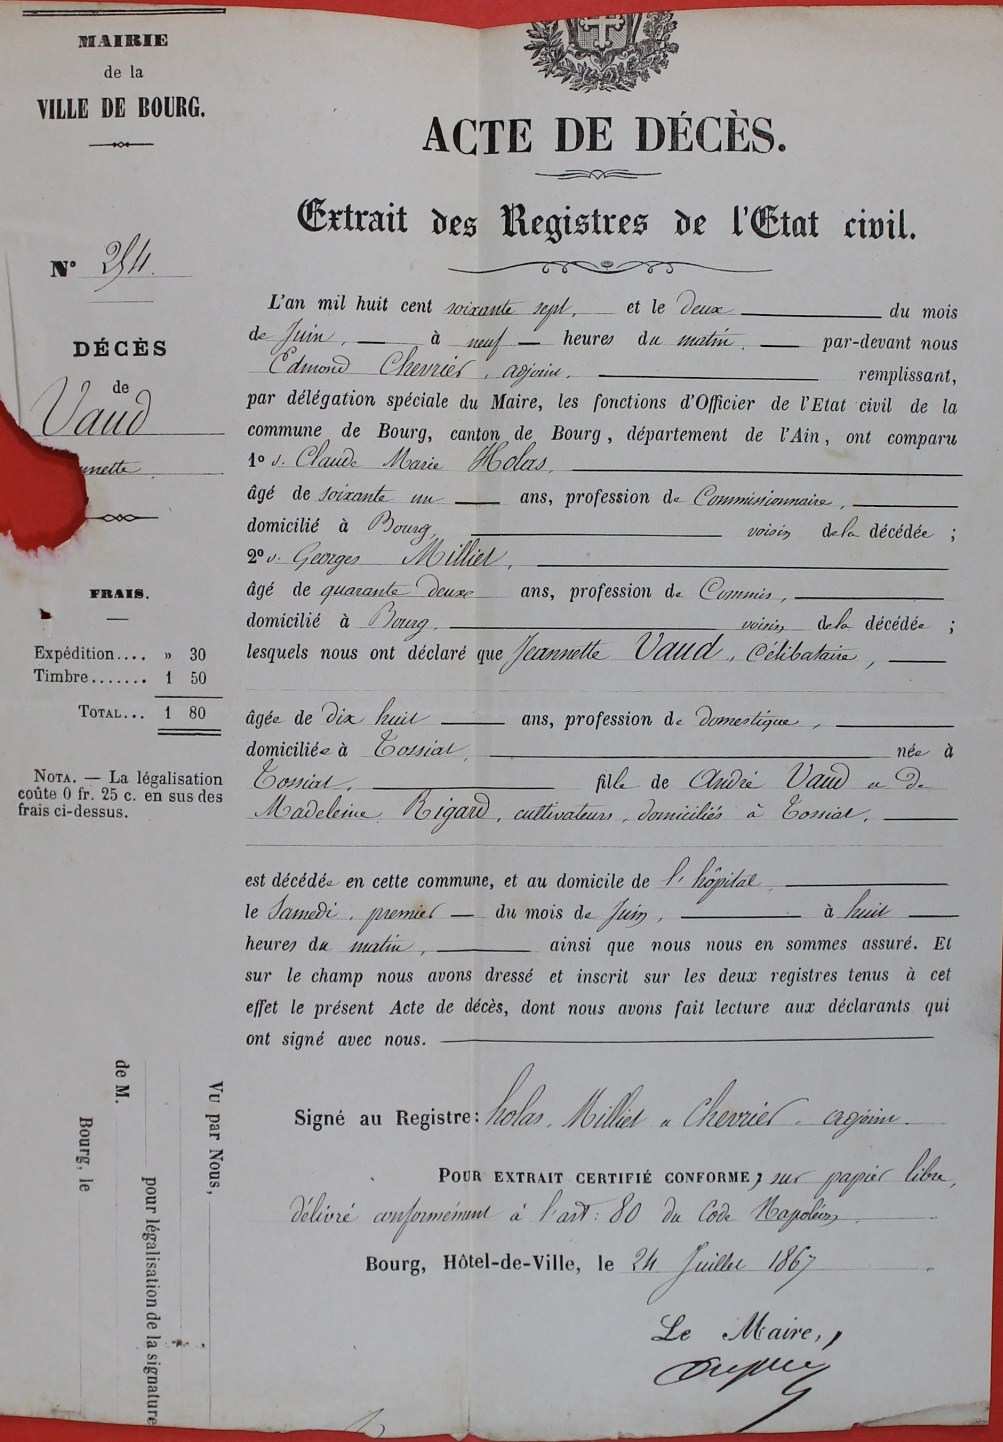 MAIRIE
de la
VILLE DE BOURG.
N° 254.
DÉCÈS
de
Vaud
nnette
FRAIS.
Expédition.... » 30
Timbre....... 1 50
TOTAL... 1 80
NOTA. — La légalisation
coûte 0 fr. 25 c. en sus des
frais ci-dessus.
Vu par Nous,
pour légalisation de la signature
de M.
Bourg, le
ACTE DE DÉCÈS.
Extrait des Registres de l'Etat civil.
L'an mil huit cent soixante sept, et le deux du mois
de Juin, à neuf heures du matin, par-devant nous
Edmond Chevrier, adjoint, remplissant,
par délégation spéciale du Maire, les fonctions d'Officier de l'Etat civil de la
commune de Bourg, canton de Bourg, département de l'Ain, ont comparu
1° s. Claude Marie Holas,
âgé de soixante un ans, profession de Commissionnaire,
domicilié à Bourg, voisin de la décédée ;
2° s. Georges Milliet,
âgé de quarante deux ans, profession de Commis,
domicilié à Bourg, voisin de la décédée ;
lesquels nous ont déclaré que Jeannette Vaud, Célibataire,
âgée de dix huit ans, profession de domestique,
domiciliée à Tossiat, née à
Tossiat, fille de André Vaud et de
Madeleine Rigard, cultivateurs, domiciliés à Tossiat,
est décédée en cette commune, et au domicile de l'hôpital,
le Samedi, premier du mois de Juin, à huit
heures du matin, ainsi que nous nous en sommes assuré. Et
sur le champ nous avons dressé et inscrit sur les deux registres tenus à cet
effet le présent Acte de décès, dont nous avons fait lecture aux déclarants qui
ont signé avec nous.
Signé au Registre: holas, Milliet et Chevrier, adjoint.
POUR EXTRAIT CERTIFIÉ CONFORME, sur papier libre,
délivré conformément à l'art: 80 du Code Napoléon.
Bourg, Hôtel-de-Ville, le 24 Juillet 1867
Le Maire,